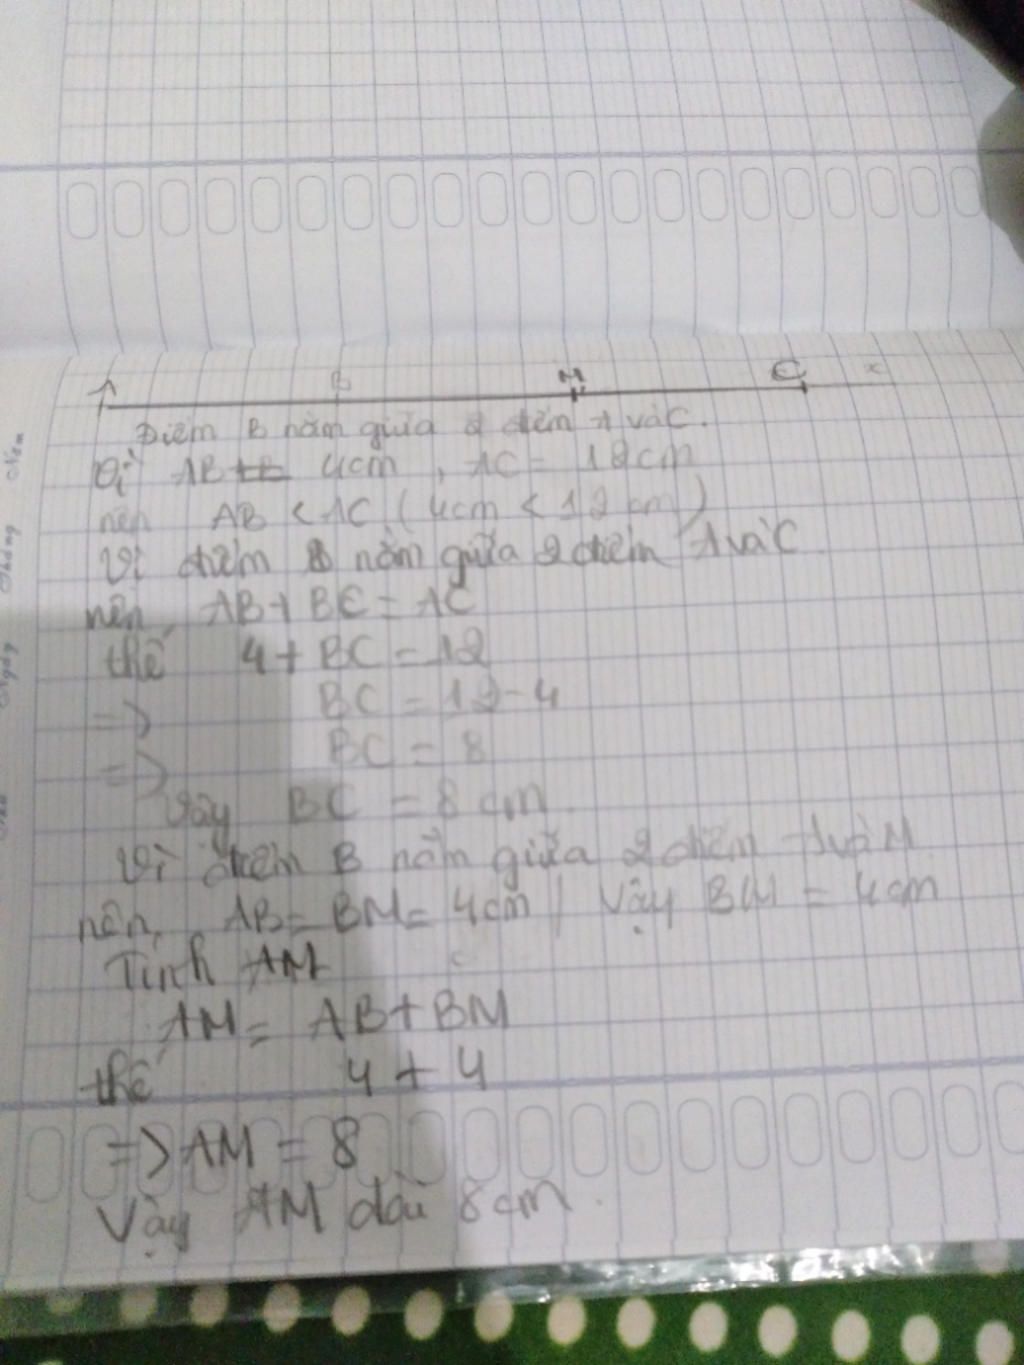 A B M C x
Điểm B nằm giữa 2 điểm A và C.
Vì AB = 4cm, AC = 12cm
nên AB < AC (4cm < 12cm)
Vì điểm B nằm giữa 2 điểm A và C.
nên, AB + BC = AC
thế 4 + BC = 12
=> BC = 12 - 4
=> BC = 8
Vậy BC = 8 cm.
Vì điểm B nằm giữa 2 điểm A và M
nên, AB = BM = 4cm / Vậy BM = 4cm
Tính AM
AM = AB + BM
thế 4 + 4
=> AM = 8
Vậy AM dài 8cm.
Ngày Tháng Năm